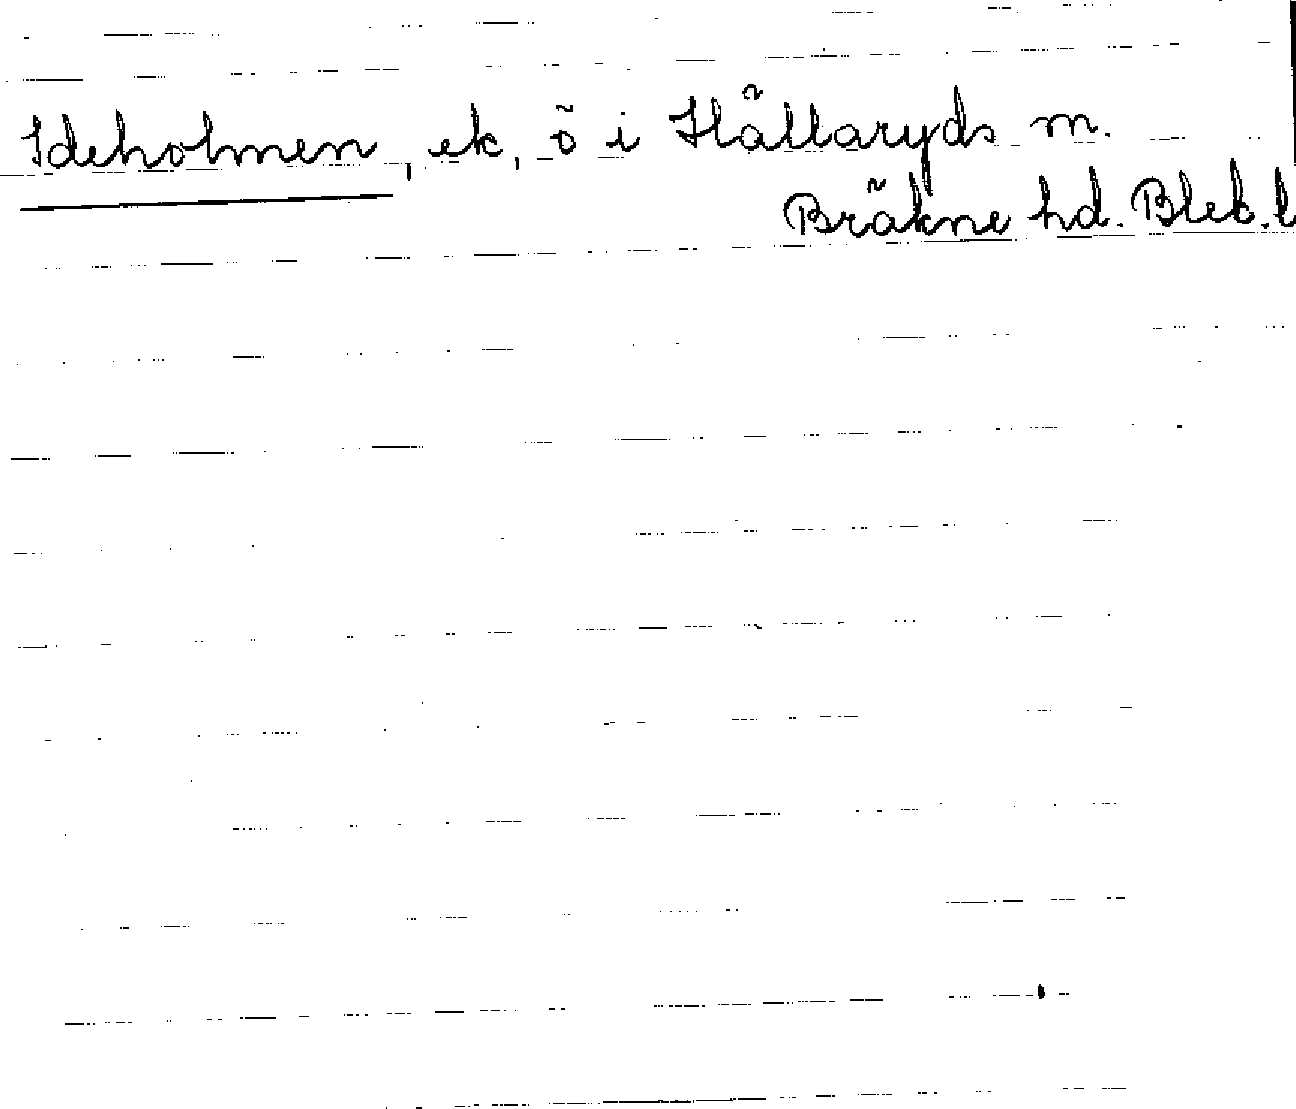 Ideholmen, ek, ö i Hällaryds m.
Bräkne hd. Blek. l